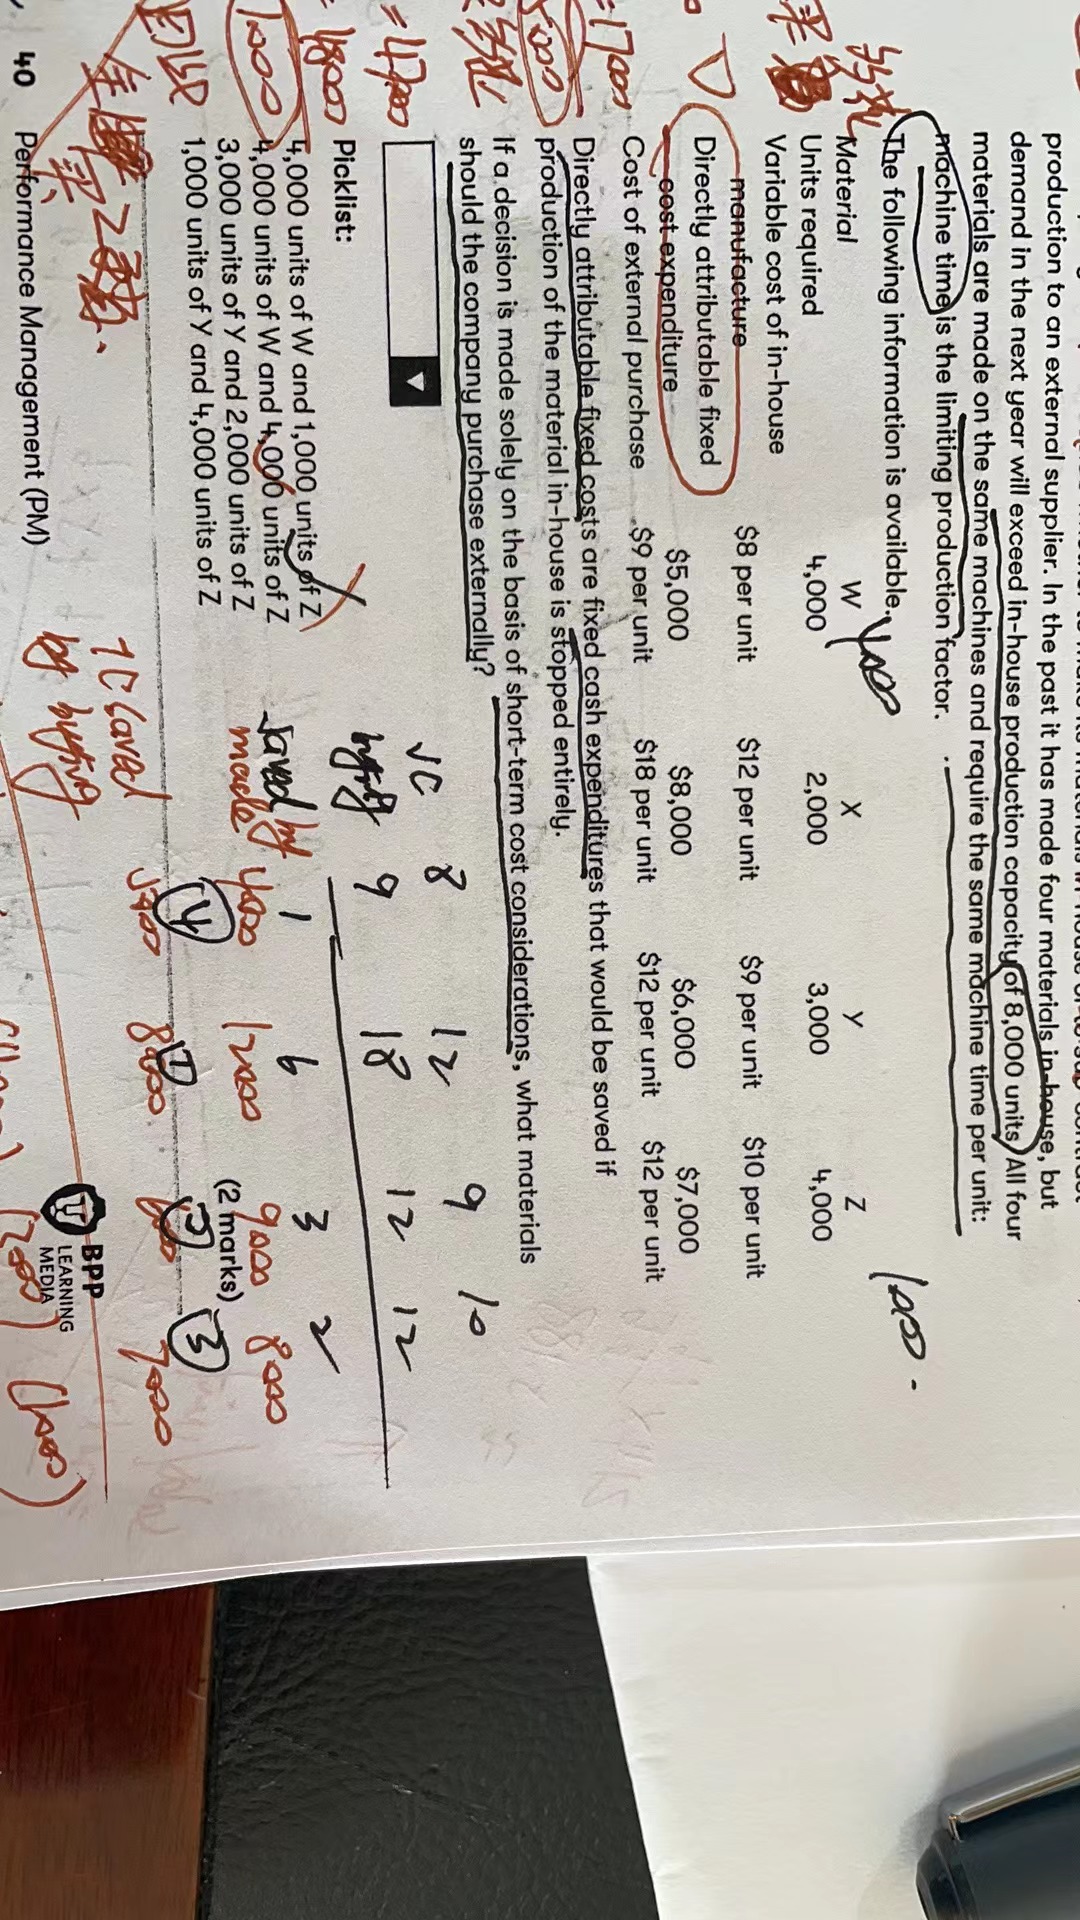 production to an external supplier. In the past it has made four materials in-house, but
demand in the next year will exceed in-house production capacity of 8,000 units. All four
materials are made on the same machines and require the same machine time per unit:
machine time is the limiting production factor.
The following information is available.
Material W X Y Z
Units required 4,000 2,000 3,000 4,000
Variable cost of in-house
manufacture $8 per unit $12 per unit $9 per unit $10 per unit
Directly attributable fixed
cost expenditure $5,000 $8,000 $6,000 $7,000
Cost of external purchase $9 per unit $18 per unit $12 per unit $12 per unit
Directly attributable fixed costs are fixed cash expenditures that would be saved if
production of the material in-house is stopped entirely.
If a decision is made solely on the basis of short-term cost considerations, what materials
should the company purchase externally?
Picklist:
4,000 units of W and 1,000 units of Z
4,000 units of W and 4,000 units of Z
3,000 units of Y and 2,000 units of Z
1,000 units of Y and 4,000 units of Z
(2 marks)
VC 8 12 9 10
buying 9 18 12 12
1 6 3 2
saved by
made 4000 12000 9000 8000
by buying
7000
(1000)
= 17000
= 47000
= 48000
BPP
LEARNING
MEDIA
40 Performance Management (PM)